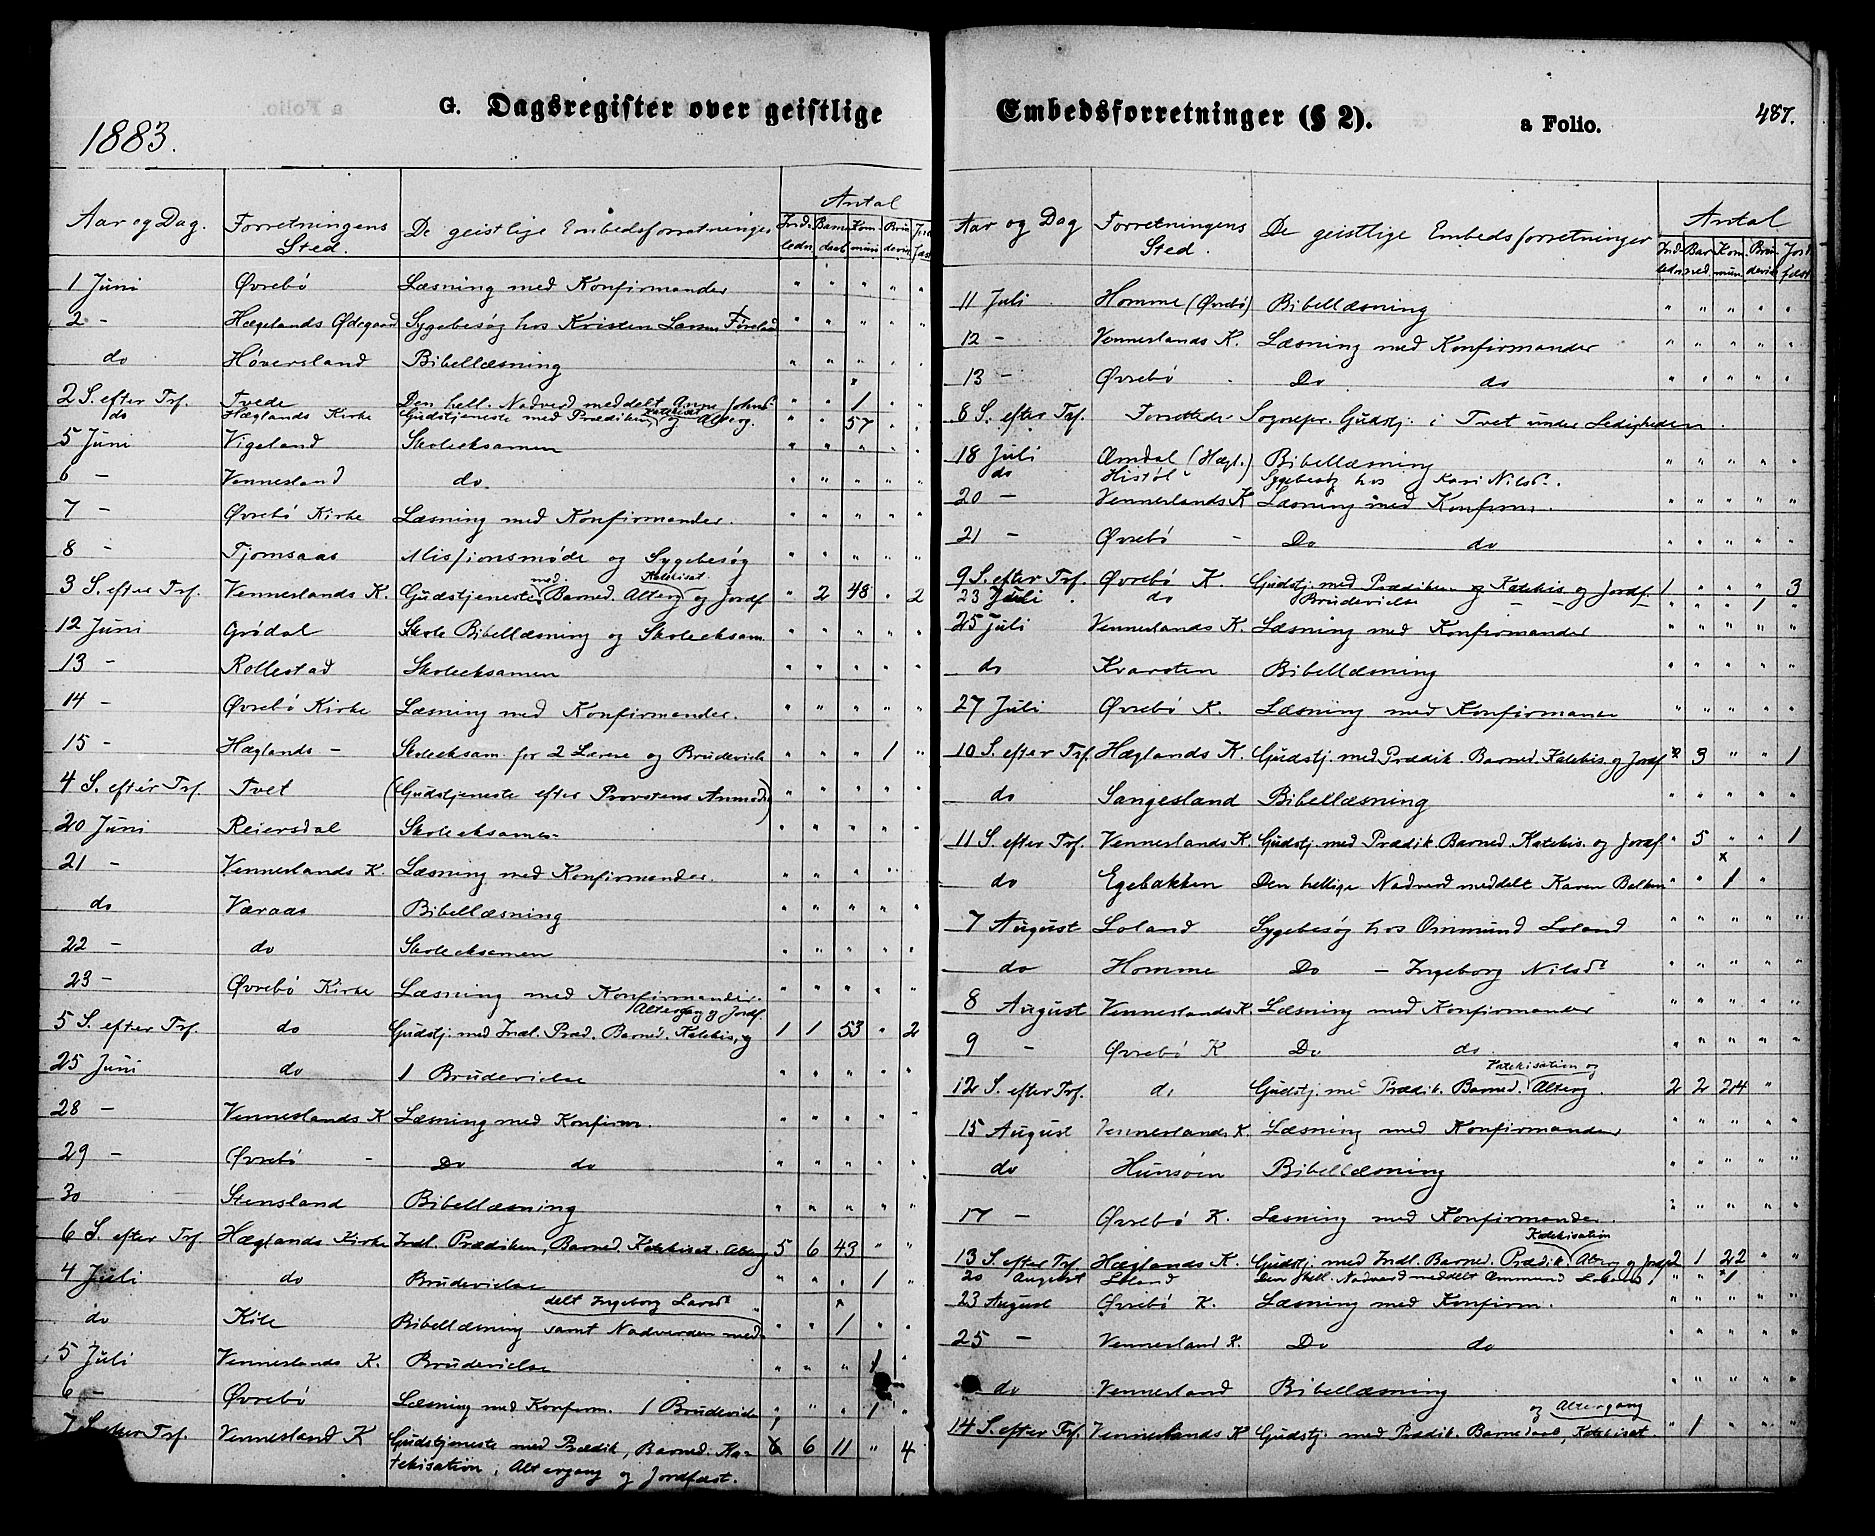 1883.
G. Dagsregister over geistlige
Aar og Dag. Forretningens Sted. De geistlige Embedsforretninger Antal
1 Juni Øvrebø Læsning med Konfirmander " " " " "
2 - Hægelands Ødegaard Sygebesøg hos Kristen Larsen " " " " "
do Høversland Bibellæsning " " " " "
2 S. efter Trf. Tvede Den hell. Nadverd meddelt Anne Johnsd. " " 1 " "
do Hæglands Kirke Gudstjeneste med Prædiken, Katekisat. og Alterg. " " 57 " "
5 Juni Vigeland Skoleeksamen " " " " "
6 - Vennesland do. " " " " "
7 - Øvrebø Kirke Læsning med Konfirmander. " " " " "
8 - Tjomsaas Missionsmøde og Sygebesøg " " " " "
3 S. efter Trf. Venneslands K. Gudstjeneste med Barned. Katekisat. Alterg. og Jordf. " 2 48 " 2
12 Juni Grødal Skole Bibellæsning og Skoleeksam. " " " " "
13 - Rollestad Skoleeksamen " " " " "
14 - Øvrebø Kirke Læsning med Konfirmander. " " " " "
15 - Hæglands - Skoleeksam. for 2 Lærere og Brudevielse " " " 1 "
4 S. efter Trf. Tvet (Gudstjeneste efter Provstens Anmodn.) " " " " "
20 Juni Reiersdal Skoleeksamen " " " " "
21 - Venneslands K. Læsning med Konfirmander. " " " " "
do Væraas Bibellæsning " " " " "
22 - do Skoleeksamen " " " " "
23 - Øvrebø Kirke Læsning med Konfirmander. " " " " "
5 S. efter Trf. do Gudstj. med Indl. Præd. Barned. Katekis., og Altergang og Jordf. 1 1 53 " 2
25 Juni do 1 Brudevielse " " " " "
28 - Venneslands K Læsning med Konfirm. " " " " "
29 - Øvrebø - Do do " " " " "
30 Stensland Bibellæsning " " " " "
6 S. efter Trf. Hæglands Kirke Indl. Prædiken, Barned. Katekisat. Alterg 5 6 43 " "
4 Juli do Brudevielse " " " 1 "
do Kile Bibellæsning samt Nadverden meddelt Ingeborg Larsd. " " 1 " "
5 Juli Venneslands K. Brudevielse " " " 1 "
6 - Øvrebø Læsning med Konfirm. 1 Brudevielse " " " 1 "
7 S. efter Trf. Vennesland K Gudstjeneste med Prædik, Barned. Ka-
tekisation, Altergang og Jordfæst. 6 6 11 " 4
Embedsforretninger (§ 2).
a Folio.
487.
Aar og Dag Forretningens Sted. De geistlige Embedsforretninger Antal
11 Juli Homme (Øvrebø) Bibellæsning " " " " "
12 - Venneslands K. Læsning med Konfirmander " " " " "
13 - Øvrebø - Do do " " " " "
8 S. efter Trf. Forrettede Sognepr. Gudstj. i Tvet under Ledigheden.
18 Juli Omdal (Hægl.) Bibellæsning " " " " "
do Histøl Sygebesøg hos Kari Nilsd.
20 - Venneslands K Læsning med Konfirm. " " " " "
21 - Øvrebø - Do do " " " " "
9 S. efter Trf. Øvrebø K. Gudstj. med Prædiken og Katekis. og Jordf. 1 " " " 3
23 Juli do Brudevielse " " " 1 "
25 Juli Venneslands K. Læsning med Konfirmander " " " " "
do Kvarsten Bibellæsning " " " " "
27 Juli Øvrebø K. Læsning med Konfirmaner " " " " "
10 S. efter Trf. Hæglands K. Gudstj. med Prædik. Barned. Katekis. og Jordf 2 3 " " 1
do Sangesland Bibellæsning " " " " "
11 S. efter Trf. Venneslands K Gudstj. med Prædik. Barned. Katekis. og Jordf. " 5 " " 1
do Egebakken Den hellige Nadverd meddelt Karen " " 1 "
7 August Loland Sygebesøg hos Ommund Loland " " " " "
do Homme Do - Ingeborg Nilsd. " " " " "
8 August Venneslands K. Læsning med Konfirmander " " " " "
9 - Øvrebø K Do do " " " " "
12 S. efter Trf. do Gudstj. med Prædik. Barned. Katekisation og Alterg. 2 2 24 "
15 August Venneslands K. Læsning med Konfirmander " " " " "
do Hunsøen Bibellæsning " " " " "
17 - Øvrebø K. Læsning med Konfirmander. " " " " "
13 S. efter Trf. Hæglands K. Gudstj. med Indl. Barned. Prædik. Katekisation Alterg og Jordf 2 1 22 " "
20 August Loland Den hell. Nadverd meddelt Ommund Loland " " 1
23 August Øvrebø K. Læsning med Konfirm. " " " " "
25 - Vennesland K. Do do " " " " "
do Vennesland Bibellæsning " " " " "
14 S. efter Trf. Venneslands K Gudstj. med Prædik. Barnedaab, Katekisat. og Altergang " 1 " " "